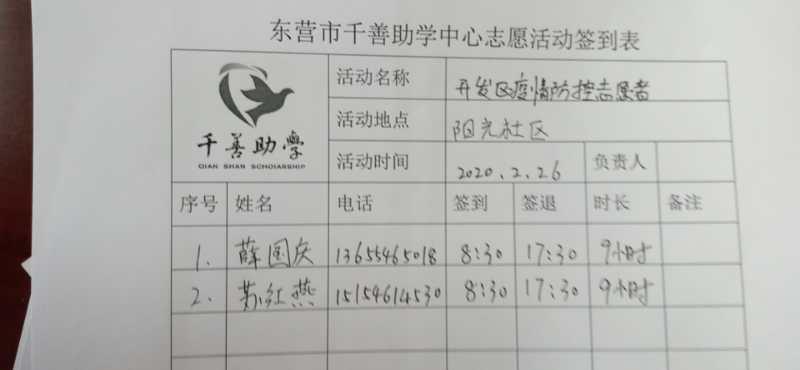 东营市千善助学中心志愿活动签到表
千善助学
QIAN SHAN SCHOIARSHIP
活动名称 开发区疫情防控志愿者
活动地点 阳光社区
活动时间 2020.2.26 负责人
序号 姓名 电话 签到 签退 时长 备注
1. 薛国庆 13655465018 8:30 17:30 9小时
2. 苏红燕 15154614530 8:30 17:30 9小时